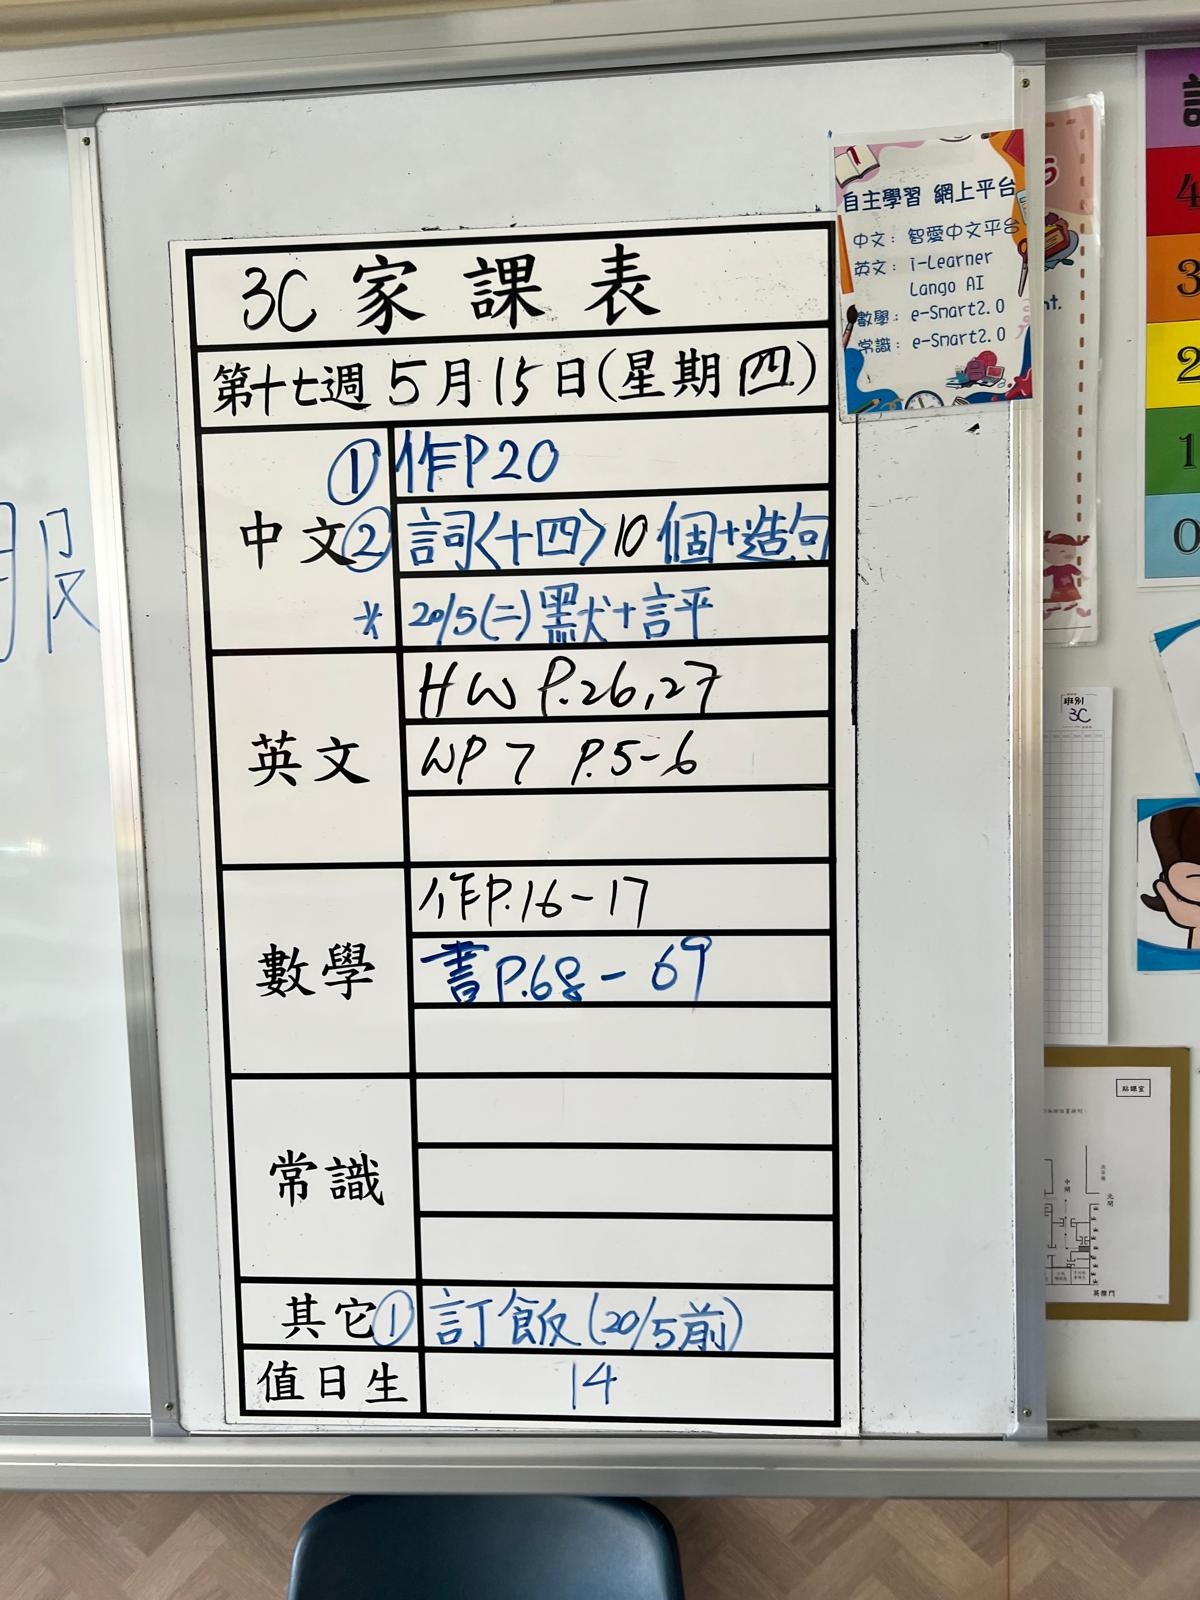 3C 家課表
第十七週 5月15日(星期四)
中文
① 作P20
② 詞<十四>10個+造句
* 20/5(二)默+評
英文
HW P.26,27
WP7 P.5-6
數學
作P.16-17
書P.68-69
常識
其它
① 訂飯(20/5前)
值日生
14
自主學習 網上平台
中文：智愛中文平台
英文：i-Learner
Lango AI
數學：e-Smart2.0
常識：e-Smart2.0
4
3
2
1
0
班別
3C
貼課室
中閘
北閘
英傑門